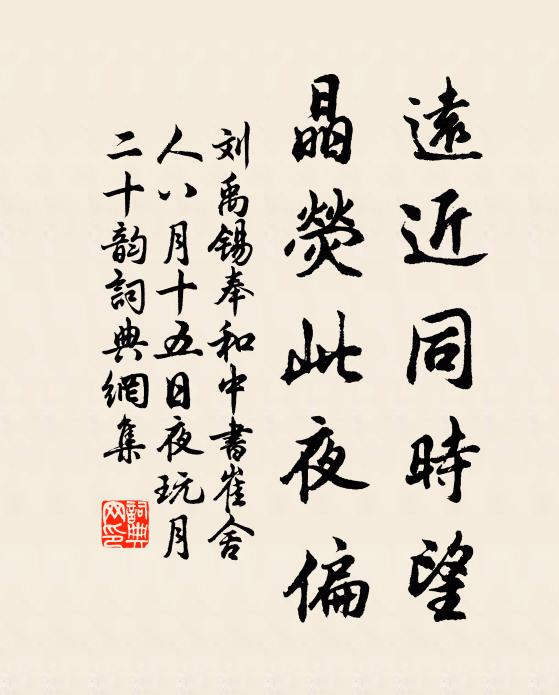 遠近同時望
晶熒此夜偏
刘禹锡奉和中書崔舍
人八月十五日夜玩月
二十韵詞典網集
詞典
网印